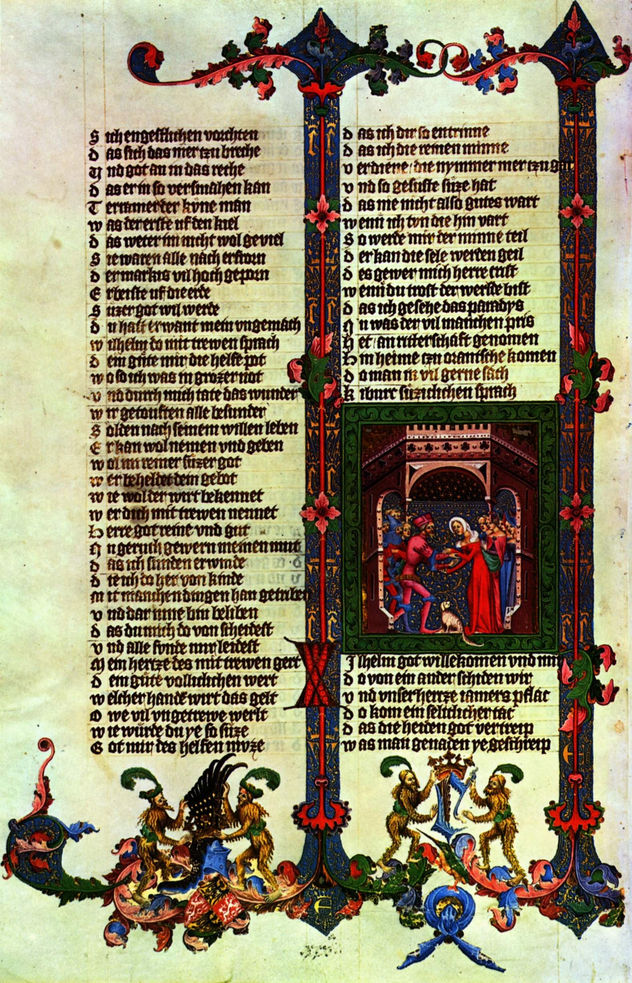 S ich engestlichen vorchten
d as sich das mer tzu breche
V nd got an in das reche
d as er in so versmahen kan
T erramer der kune man
w as der erste uf den kiel
d as weter im nicht wol geviel
S ie waren alle nach erstorn
d er markis vil hoch geporn
E rbeiste uf die erde
S uzer got vil werde
d u hast erwant mein vngemach
w ilhelm do mit trewen sprach
d ein gute mir die helfe pot
w o so ich was in grozer not
v nd durch mich tate das wunder
w ir getouften alle besunder
S olden nach seinem willen leben
E r kan wol nemen vnd geben
w ol im reiner suzer got
w er beheldet dein gebot
w ie wol der wirt bekennet
w er dich mit trewen nennet
h erre got reine vnd gut
N u geruch gewern meinen mut
d as ich sunden erwinde
d ie ich do her von kinde
M it manchen dingen han getriben
v nd dar inne bin beliben
d as du mich do von scheidest
v nd alle sunde mir leidest
M ein hertze des mit trewen gert
d ein gute vollichen wert
w elcher hande wirt das gelt
O we vil vngetrewe werlt
w ie wurde du ye so suze
G ot mir des helfen muze
d as ich dir so entrinne
d as ich die reinen minne
v erdiene die nymmer mer tzu gat
v nd so gesuste suze hat
d as nie nicht also gutes wart
w enn ich tun die hin vart
S o werde mir der minne teil
d er kan die sele werden geil
d es gewer mich herre crist
w enn du trost der werlde bist
d as ich gesehe das paradys
N u was der vil manchen pris
H et an ritterschaft genomen
H in heime tzu orantsche komen
d o man in vil gerne sach
k iburc suzichlichen sprach
W Ilhelm got willekomen vnd mir
d o von ein ander schiden wir
v nd vnser hertze iamers pflac
d o kom ein selitlicher tac
d as die heiden got vertreip
w as man genaden ye geschreip
E